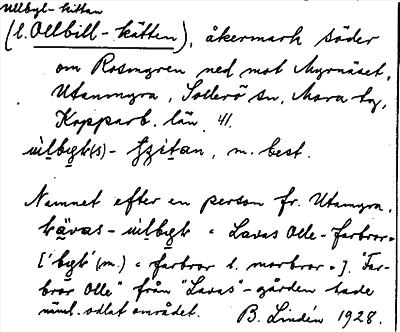 Ullbyl-kittan
(l. Ollbill-kätten), åkermark söder
om Rosmyren ned mot Myrnäset,
Utanmyra, Sollerö sn, Mora tg,
Kopparb. län. 41.
m. best.
Namnet efter en person fr. Utanmyra,
= Lavas Olle-farbror =
(m.) = farbror l. morbror =]. "Far-
bror Olle" från "Lavas"-gården hade
näml. odlat området. B. Lindén 1928.